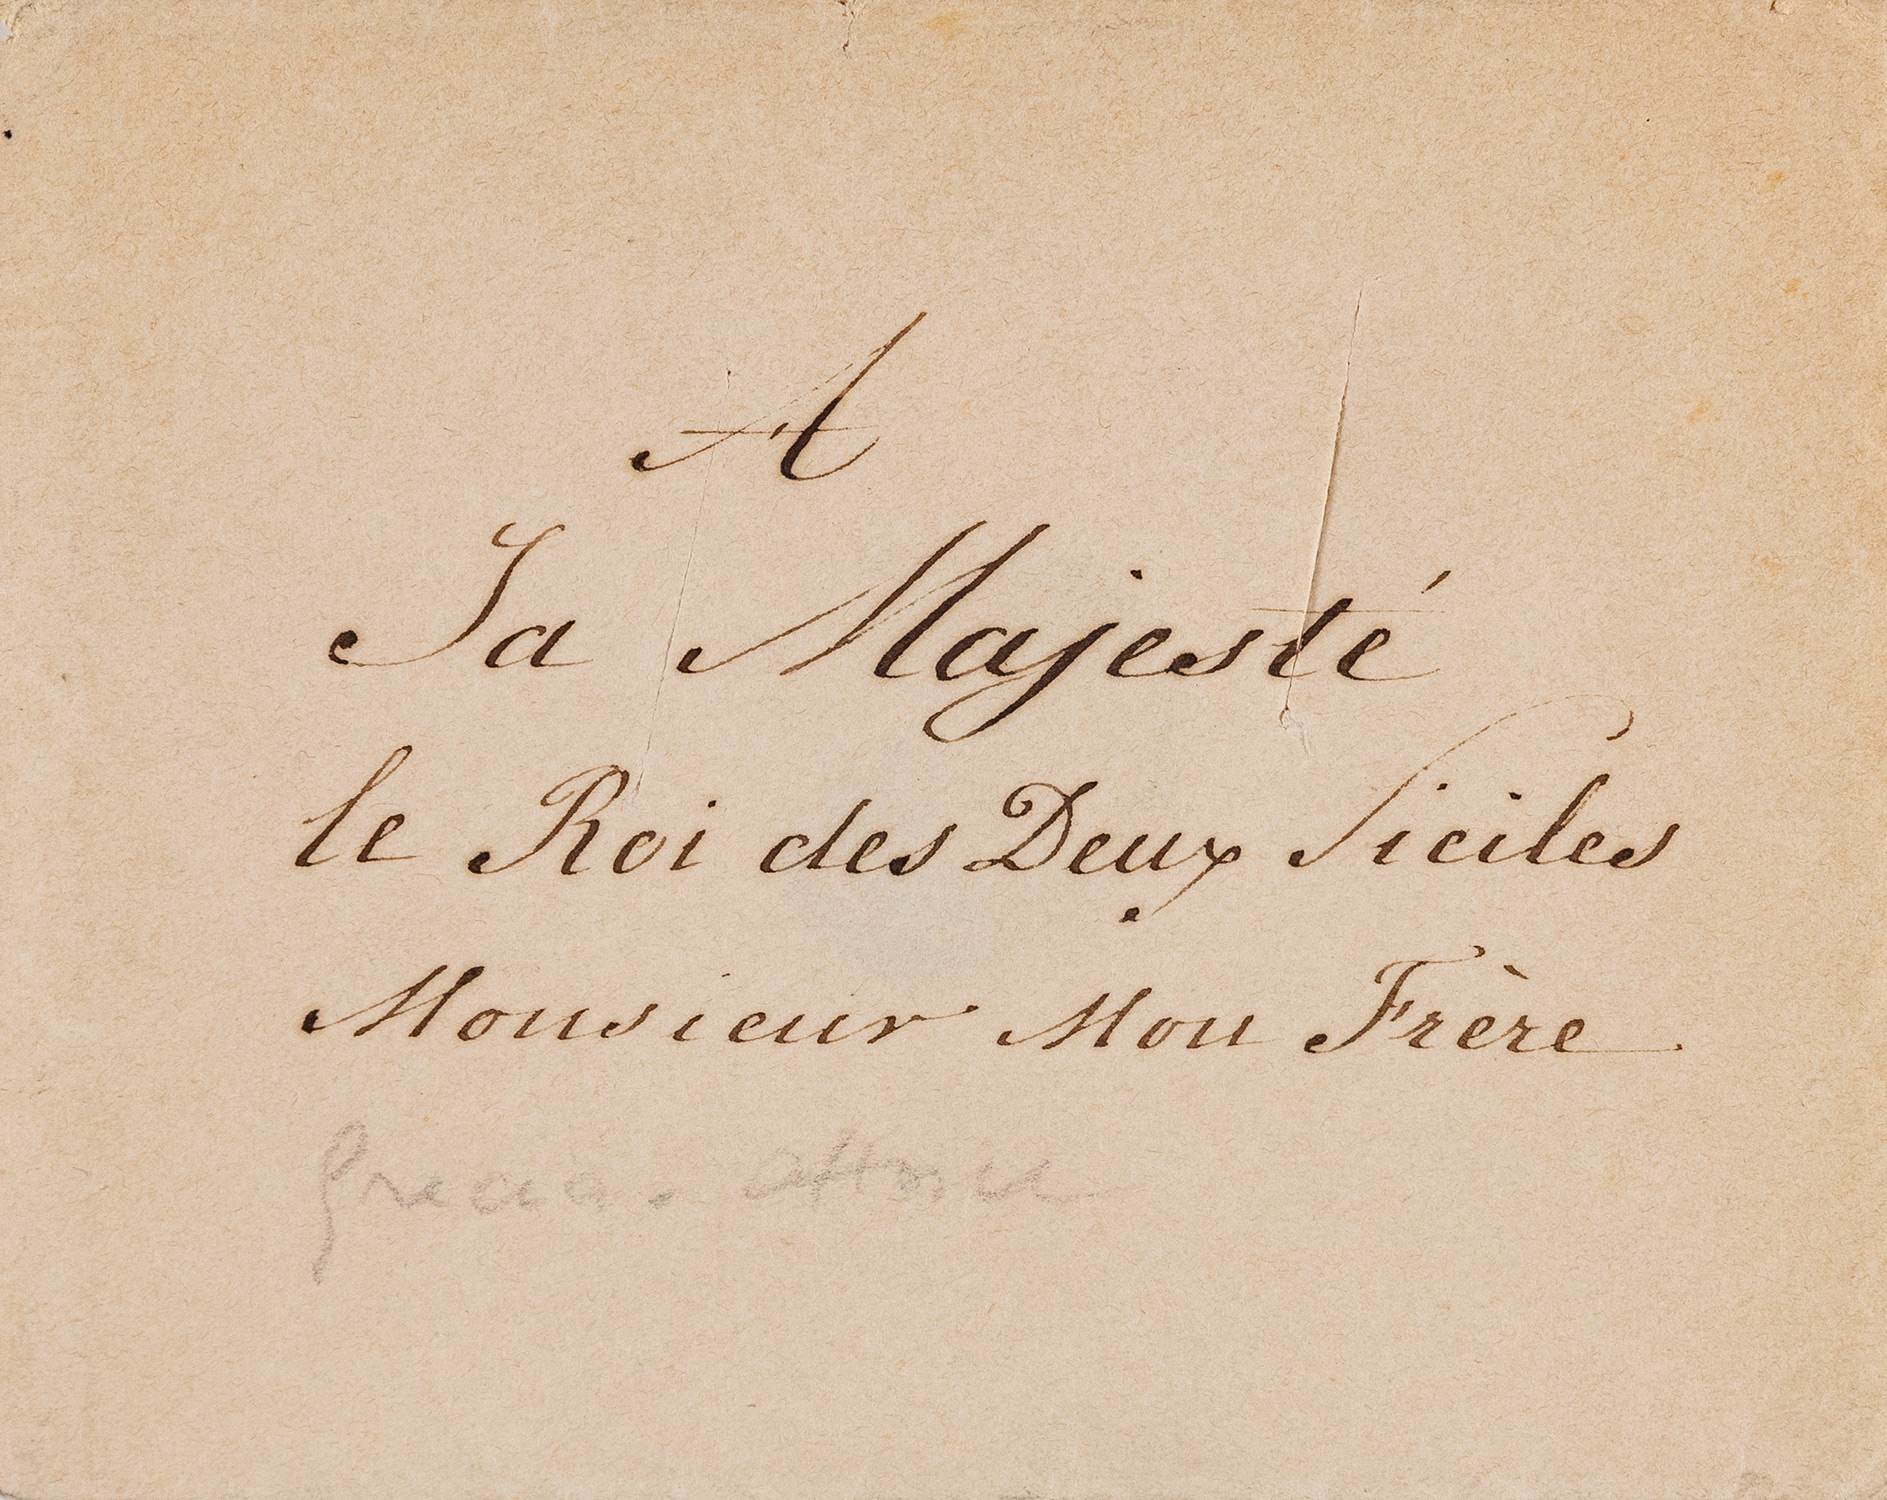 A
Sa Majesté
le Roi des Deux Siciles
Monsieur Mon Frère
Grecia.